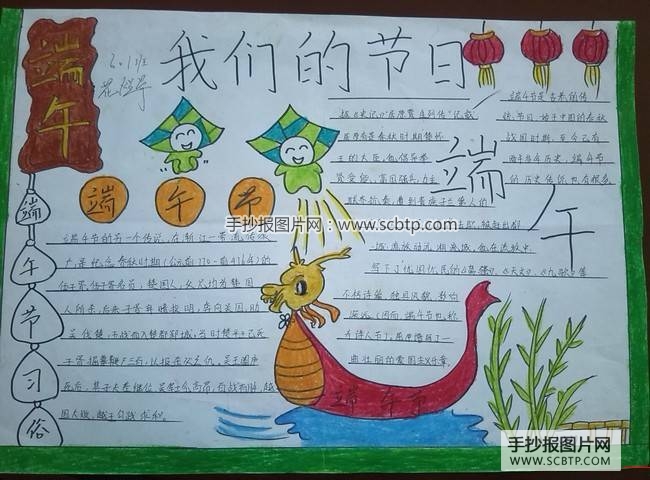 我们的节日
端午
6.1班
端午节
端午节习俗
端午
端午节的另一个传说，在浙江一带流传很
广，是纪念春秋时期（公元前770--前476年）的
伍子胥，伍子胥名员，楚国人，父兄均为楚
王所杀，后来子胥弃暗投明，奔向吴国，助
吴伐楚，五战而入楚都郢城，当时楚平王已死
死后，其子夫差继位，吴军士气高昂，百战百胜，越
国大败，越王勾践求和。
据《史记》“屈原贾生列传”记载
屈原，是春秋时期楚怀
王的大臣，他倡导举
贤受能，富国强兵，力主
联齐抗秦，遭到贵族子兰等人的
写下了忧国忧民的《离骚》、《天问》、《九歌》等
不朽诗篇，独具风貌，影响
深远（因而，端午节也称
为诗人节）
曲壮丽的爱国主义乐章。
端午节是古老的传
统节日，始于中国的春秋
战国时期，至今已有
两千多年历史，端午节
的历史传说也有很多，
端午节
手抄报图片网：www.scbtp.com
手抄报图片网
WWW.SCBTP.COM